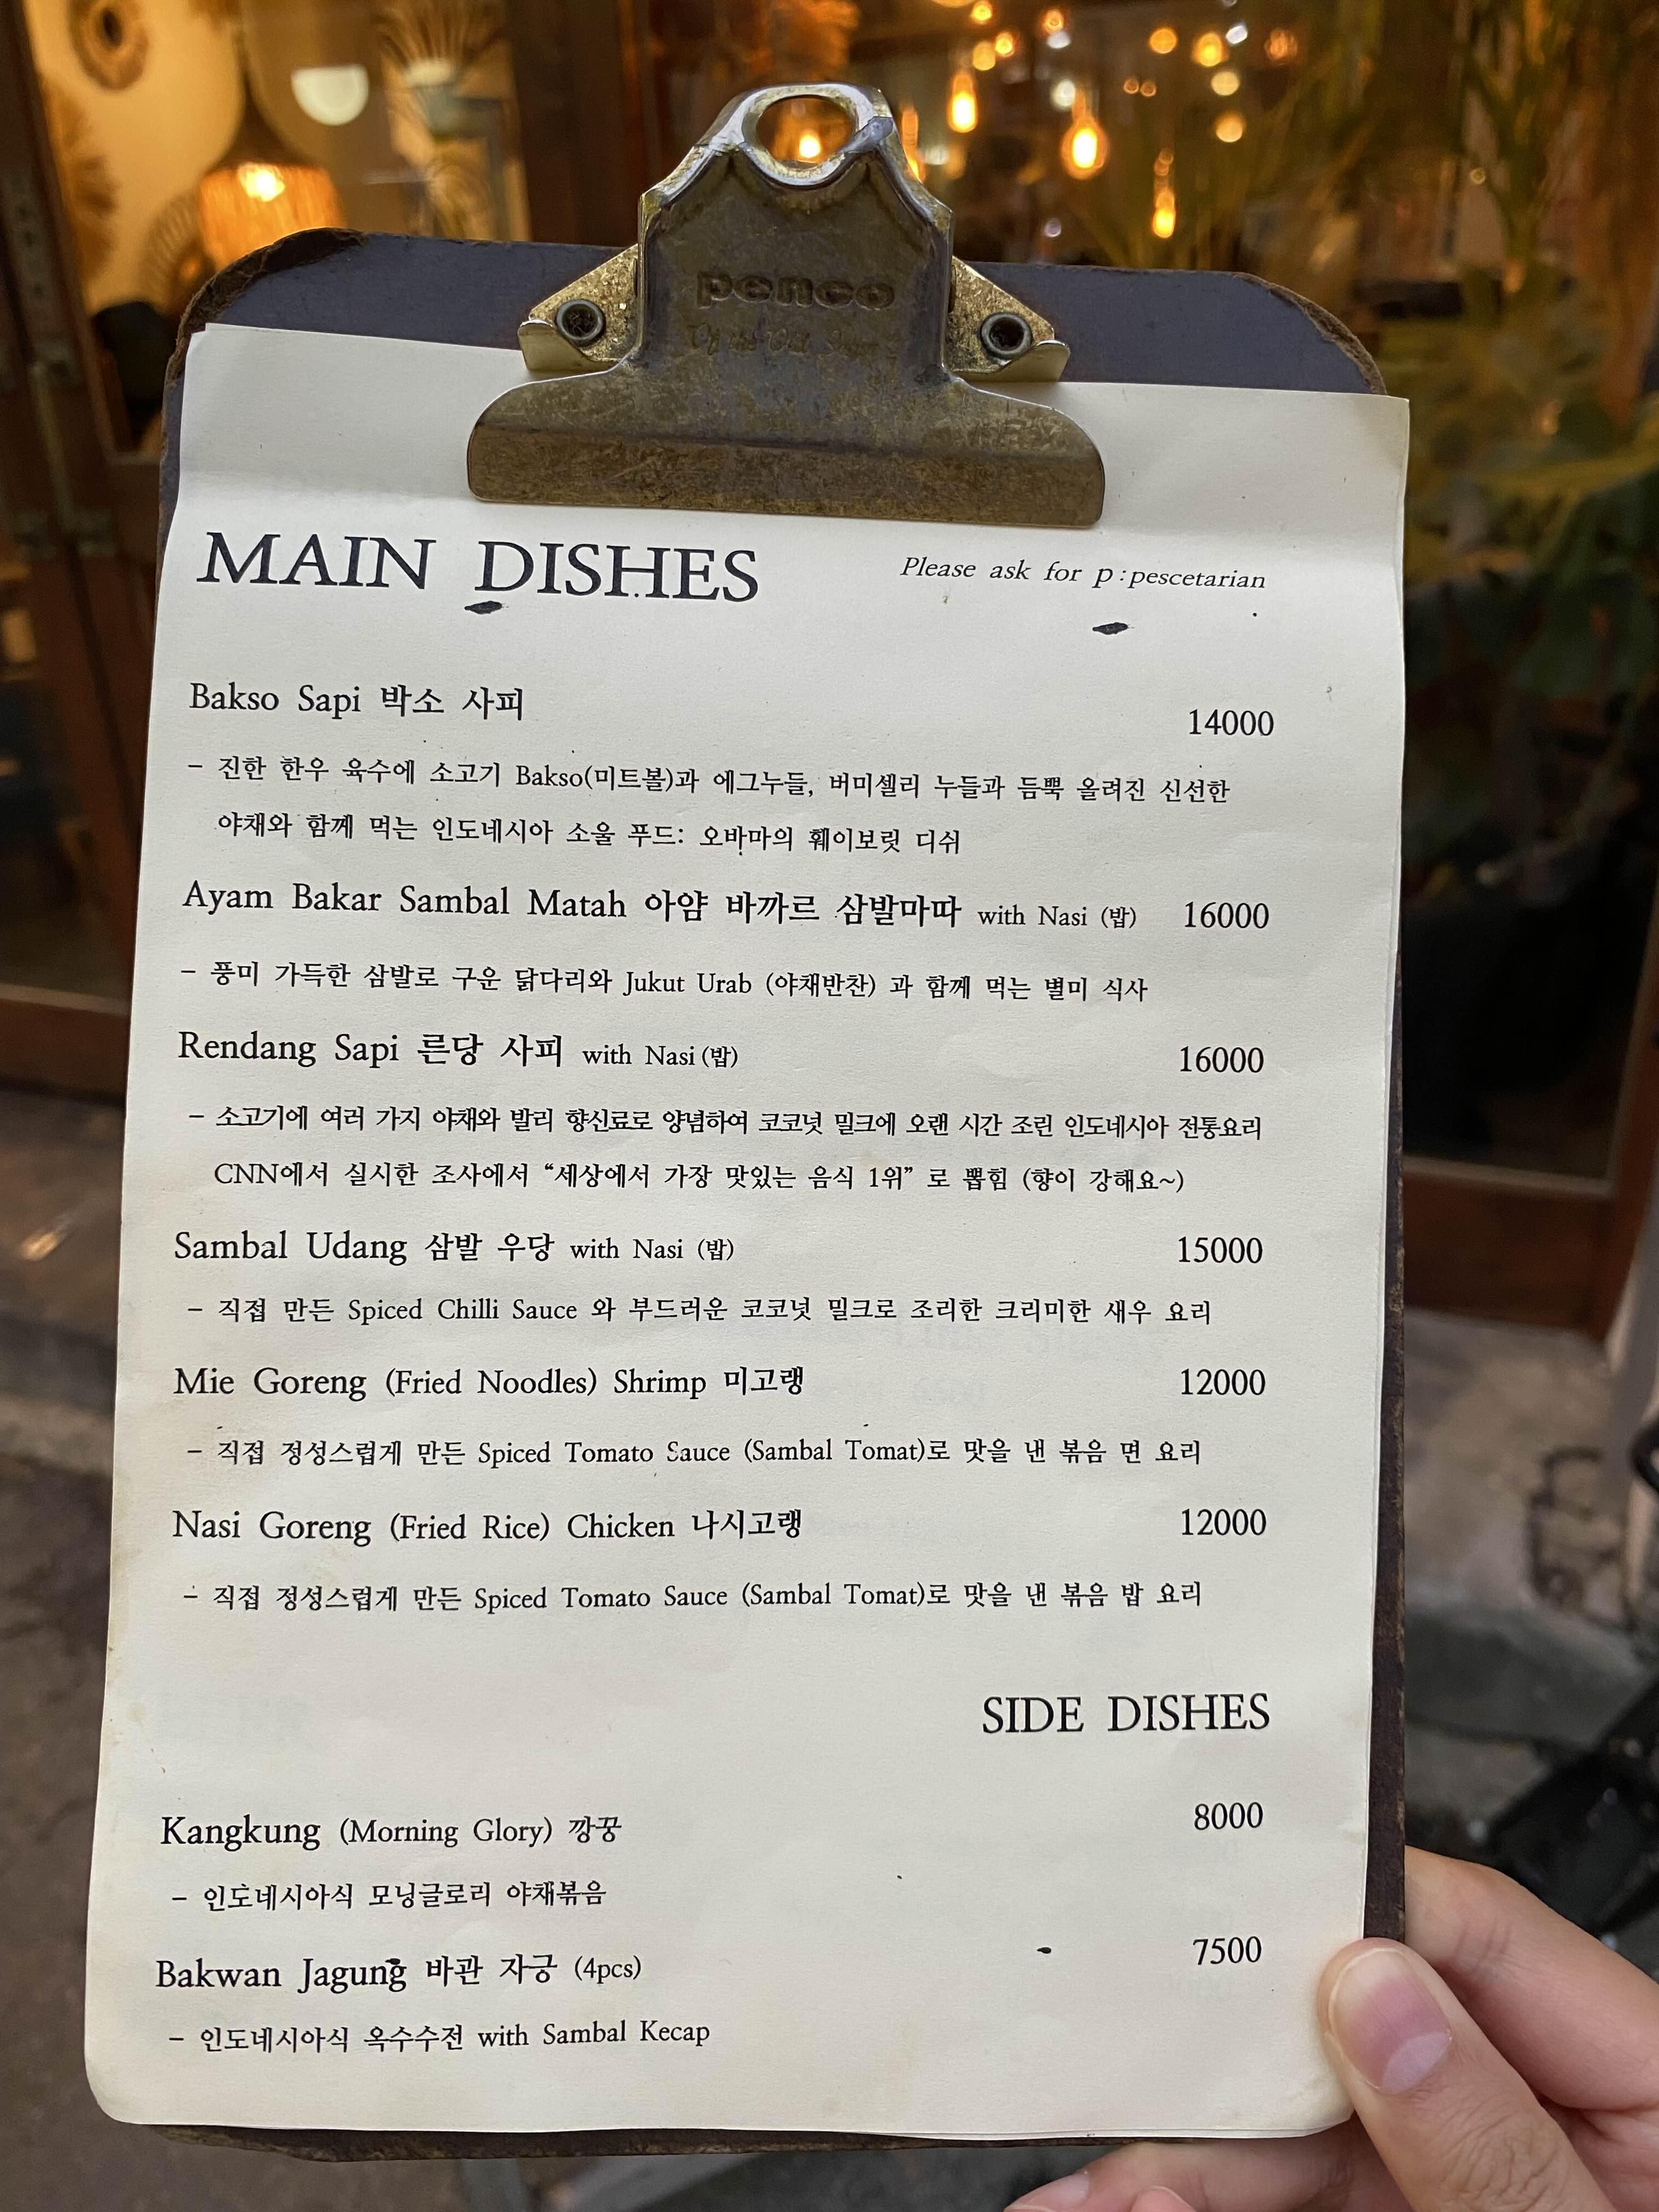 penco
MAIN DISHES
Please ask for p : pescetarian
Bakso Sapi 박소 사피
14000
- 진한 한우 육수에 소고기 Bakso(미트볼)과 에그누들, 버미셀리 누들과 듬뿍 올려진 신선한
야채와 함께 먹는 인도네시아 소울 푸드: 오바마의 훼이보릿 디쉬
Ayam Bakar Sambal Matah 아얌 바까르 삼발마따 with Nasi (밥) 16000
- 풍미 가득한 삼발로 구운 닭다리와 Jukut Urab (야채반찬) 과 함께 먹는 별미 식사
Rendang Sapi 른당 사피 with Nasi (밥) 16000
- 소고기에 여러 가지 야채와 발리 향신료로 양념하여 코코넛 밀크에 오랜 시간 조린 인도네시아 전통요리
CNN에서 실시한 조사에서 “세상에서 가장 맛있는 음식 1위” 로 뽑힘 (향이 강해요~)
Sambal Udang 삼발 우당 with Nasi (밥) 15000
- 직접 만든 Spiced Chilli Sauce 와 부드러운 코코넛 밀크로 조리한 크리미한 새우 요리
Mie Goreng (Fried Noodles) Shrimp 미고랭 12000
- 직접 정성스럽게 만든 Spiced Tomato Sauce (Sambal Tomat)로 맛을 낸 볶음 면 요리
Nasi Goreng (Fried Rice) Chicken 나시고랭 12000
- 직접 정성스럽게 만든 Spiced Tomato Sauce (Sambal Tomat)로 맛을 낸 볶음 밥 요리
SIDE DISHES
Kangkung (Morning Glory) 깡꿍 8000
- 인도네시아식 모닝글로리 야채볶음
Bakwan Jagung 바관 자궁 (4pcs) 7500
- 인도네시아식 옥수수전 with Sambal Kecap